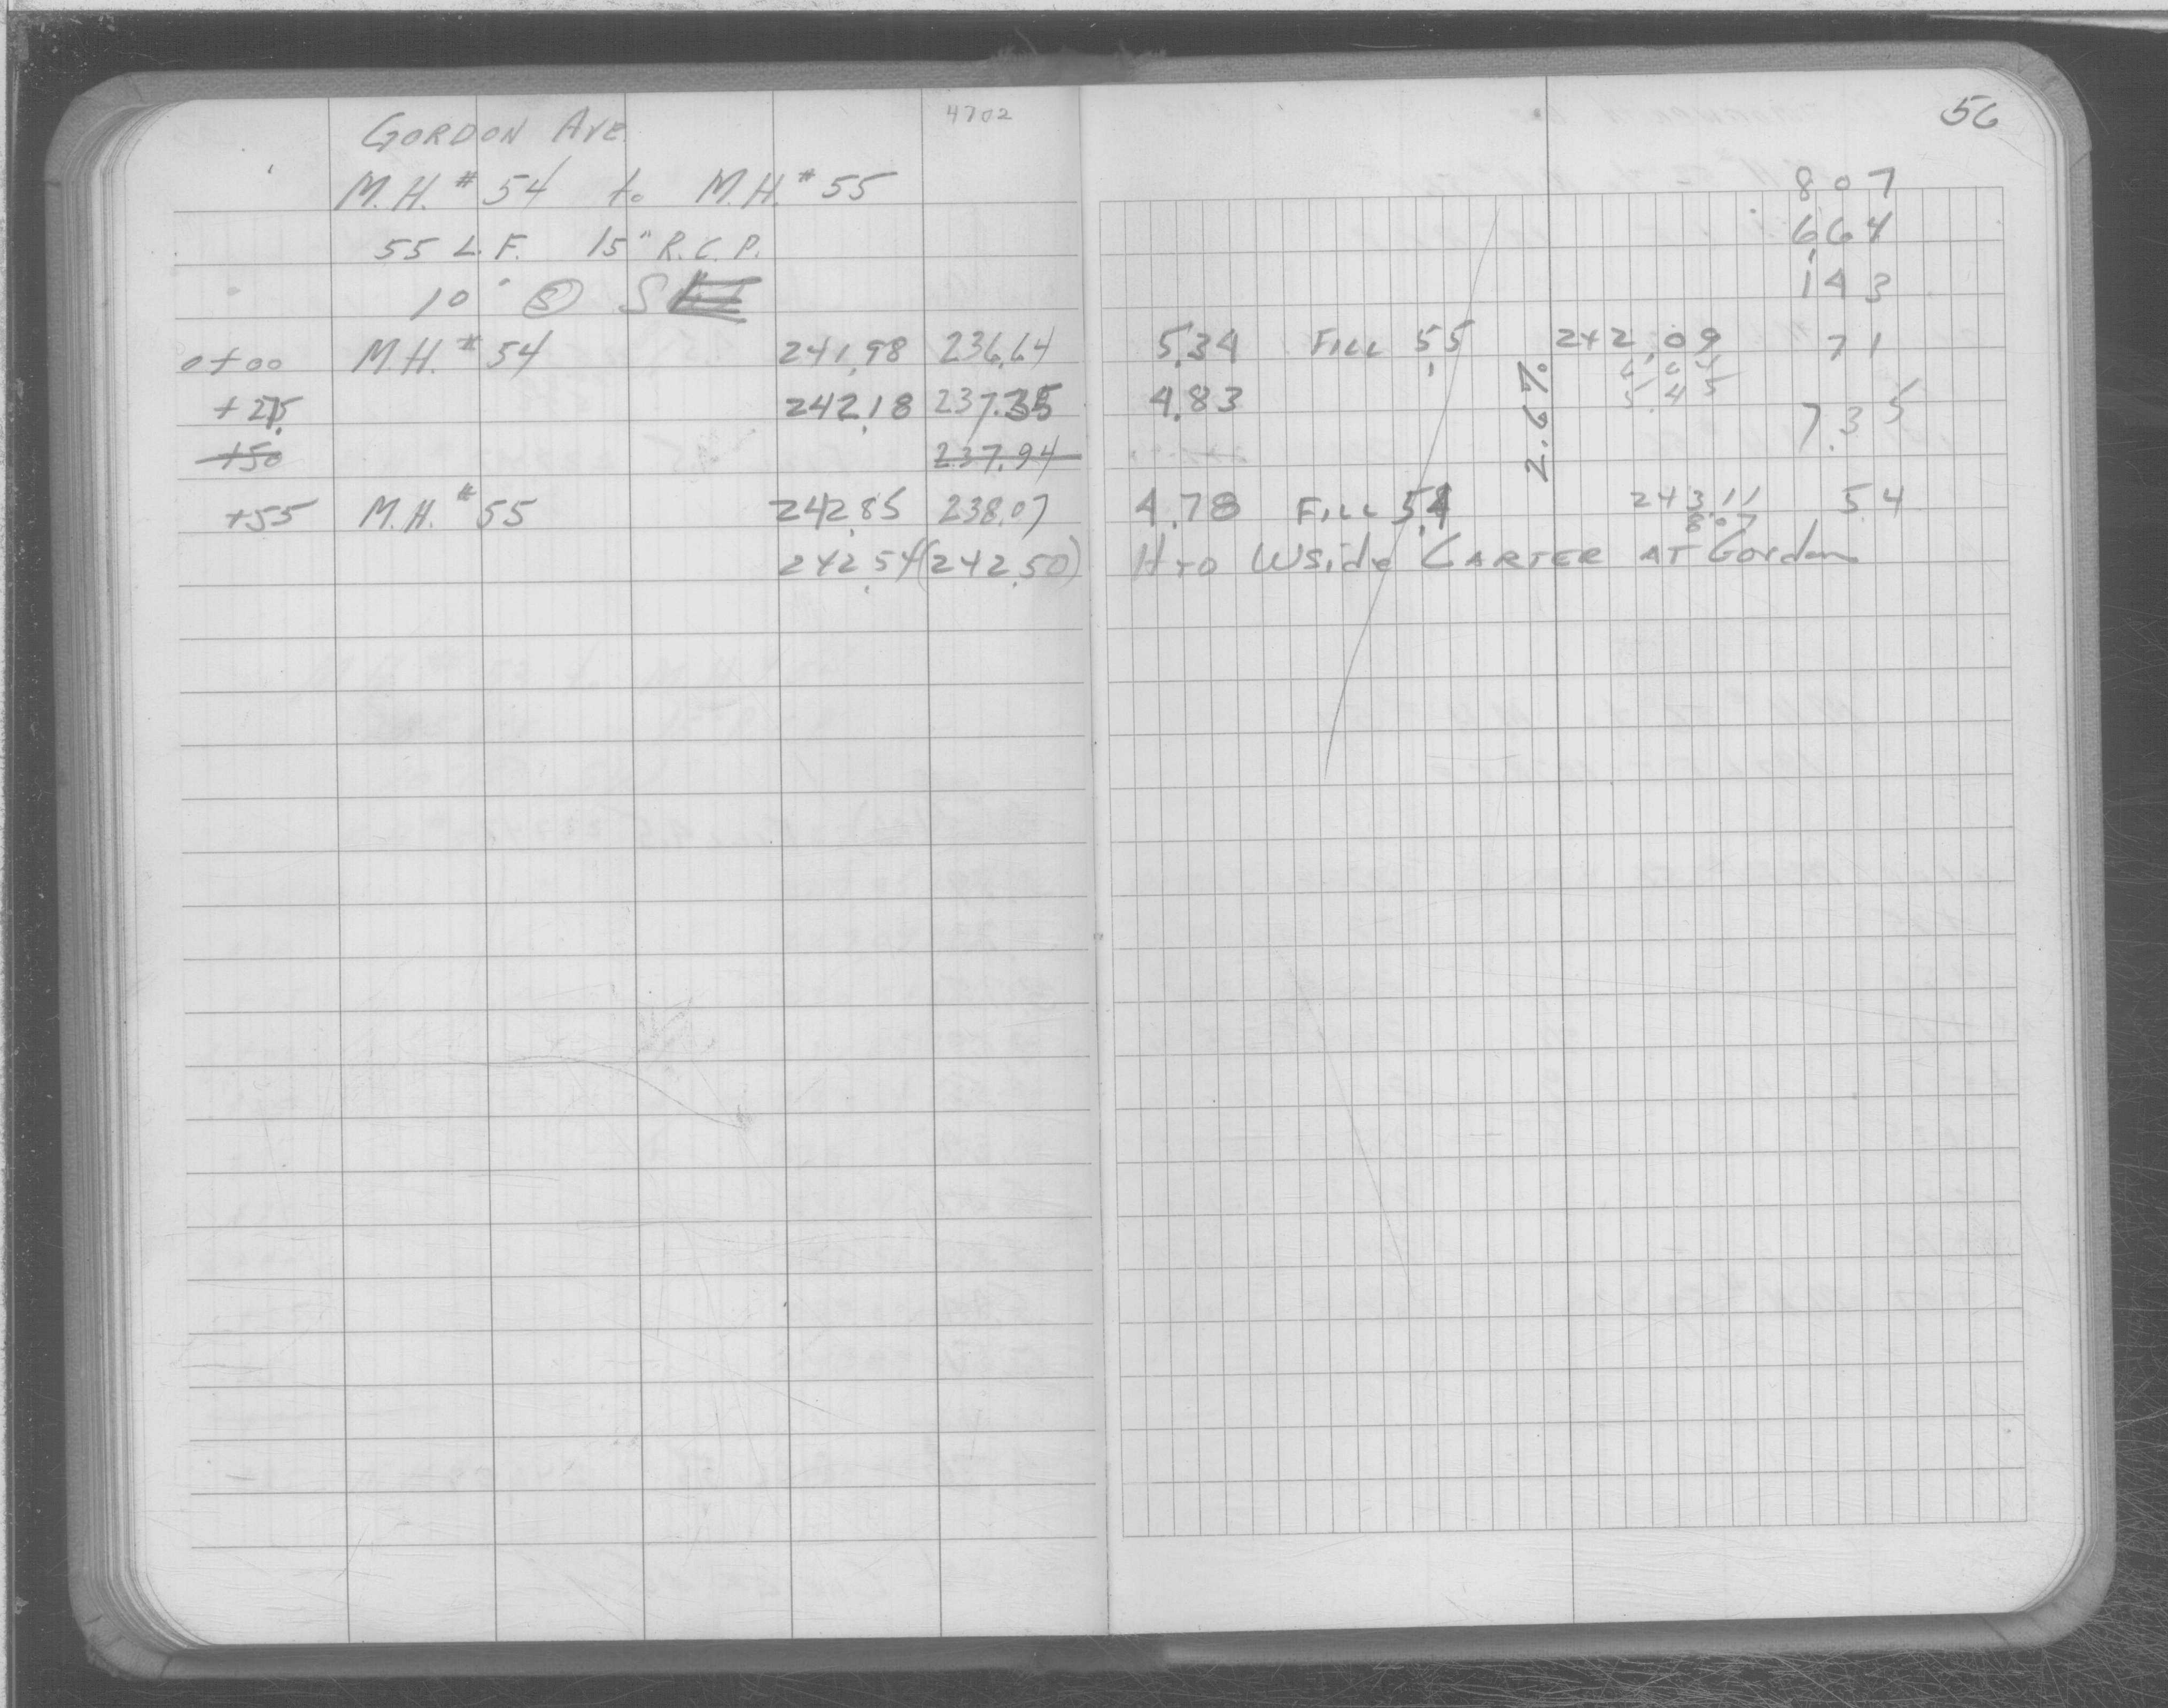 4702
GORDON AVE.
M.H. # 54 to M.H. # 55
55 L.F. 15" R.C.P.
10' Ⓢ S
0+00 M.H. # 54 241.98 236.64
+27.5 242.18 237.35
+50 237.94
+55 M.H. # 55 242.85 238.07
242.54 (242.50)
56
8.07
6.64
1.43
5.34 FILL 5.5 242.09 71
6.64
4.83 5.45 7.35
2.67%
4.78 FILL 5.4 243.11 5.4
8.07
Hyd WSide CARTER AT Gordon